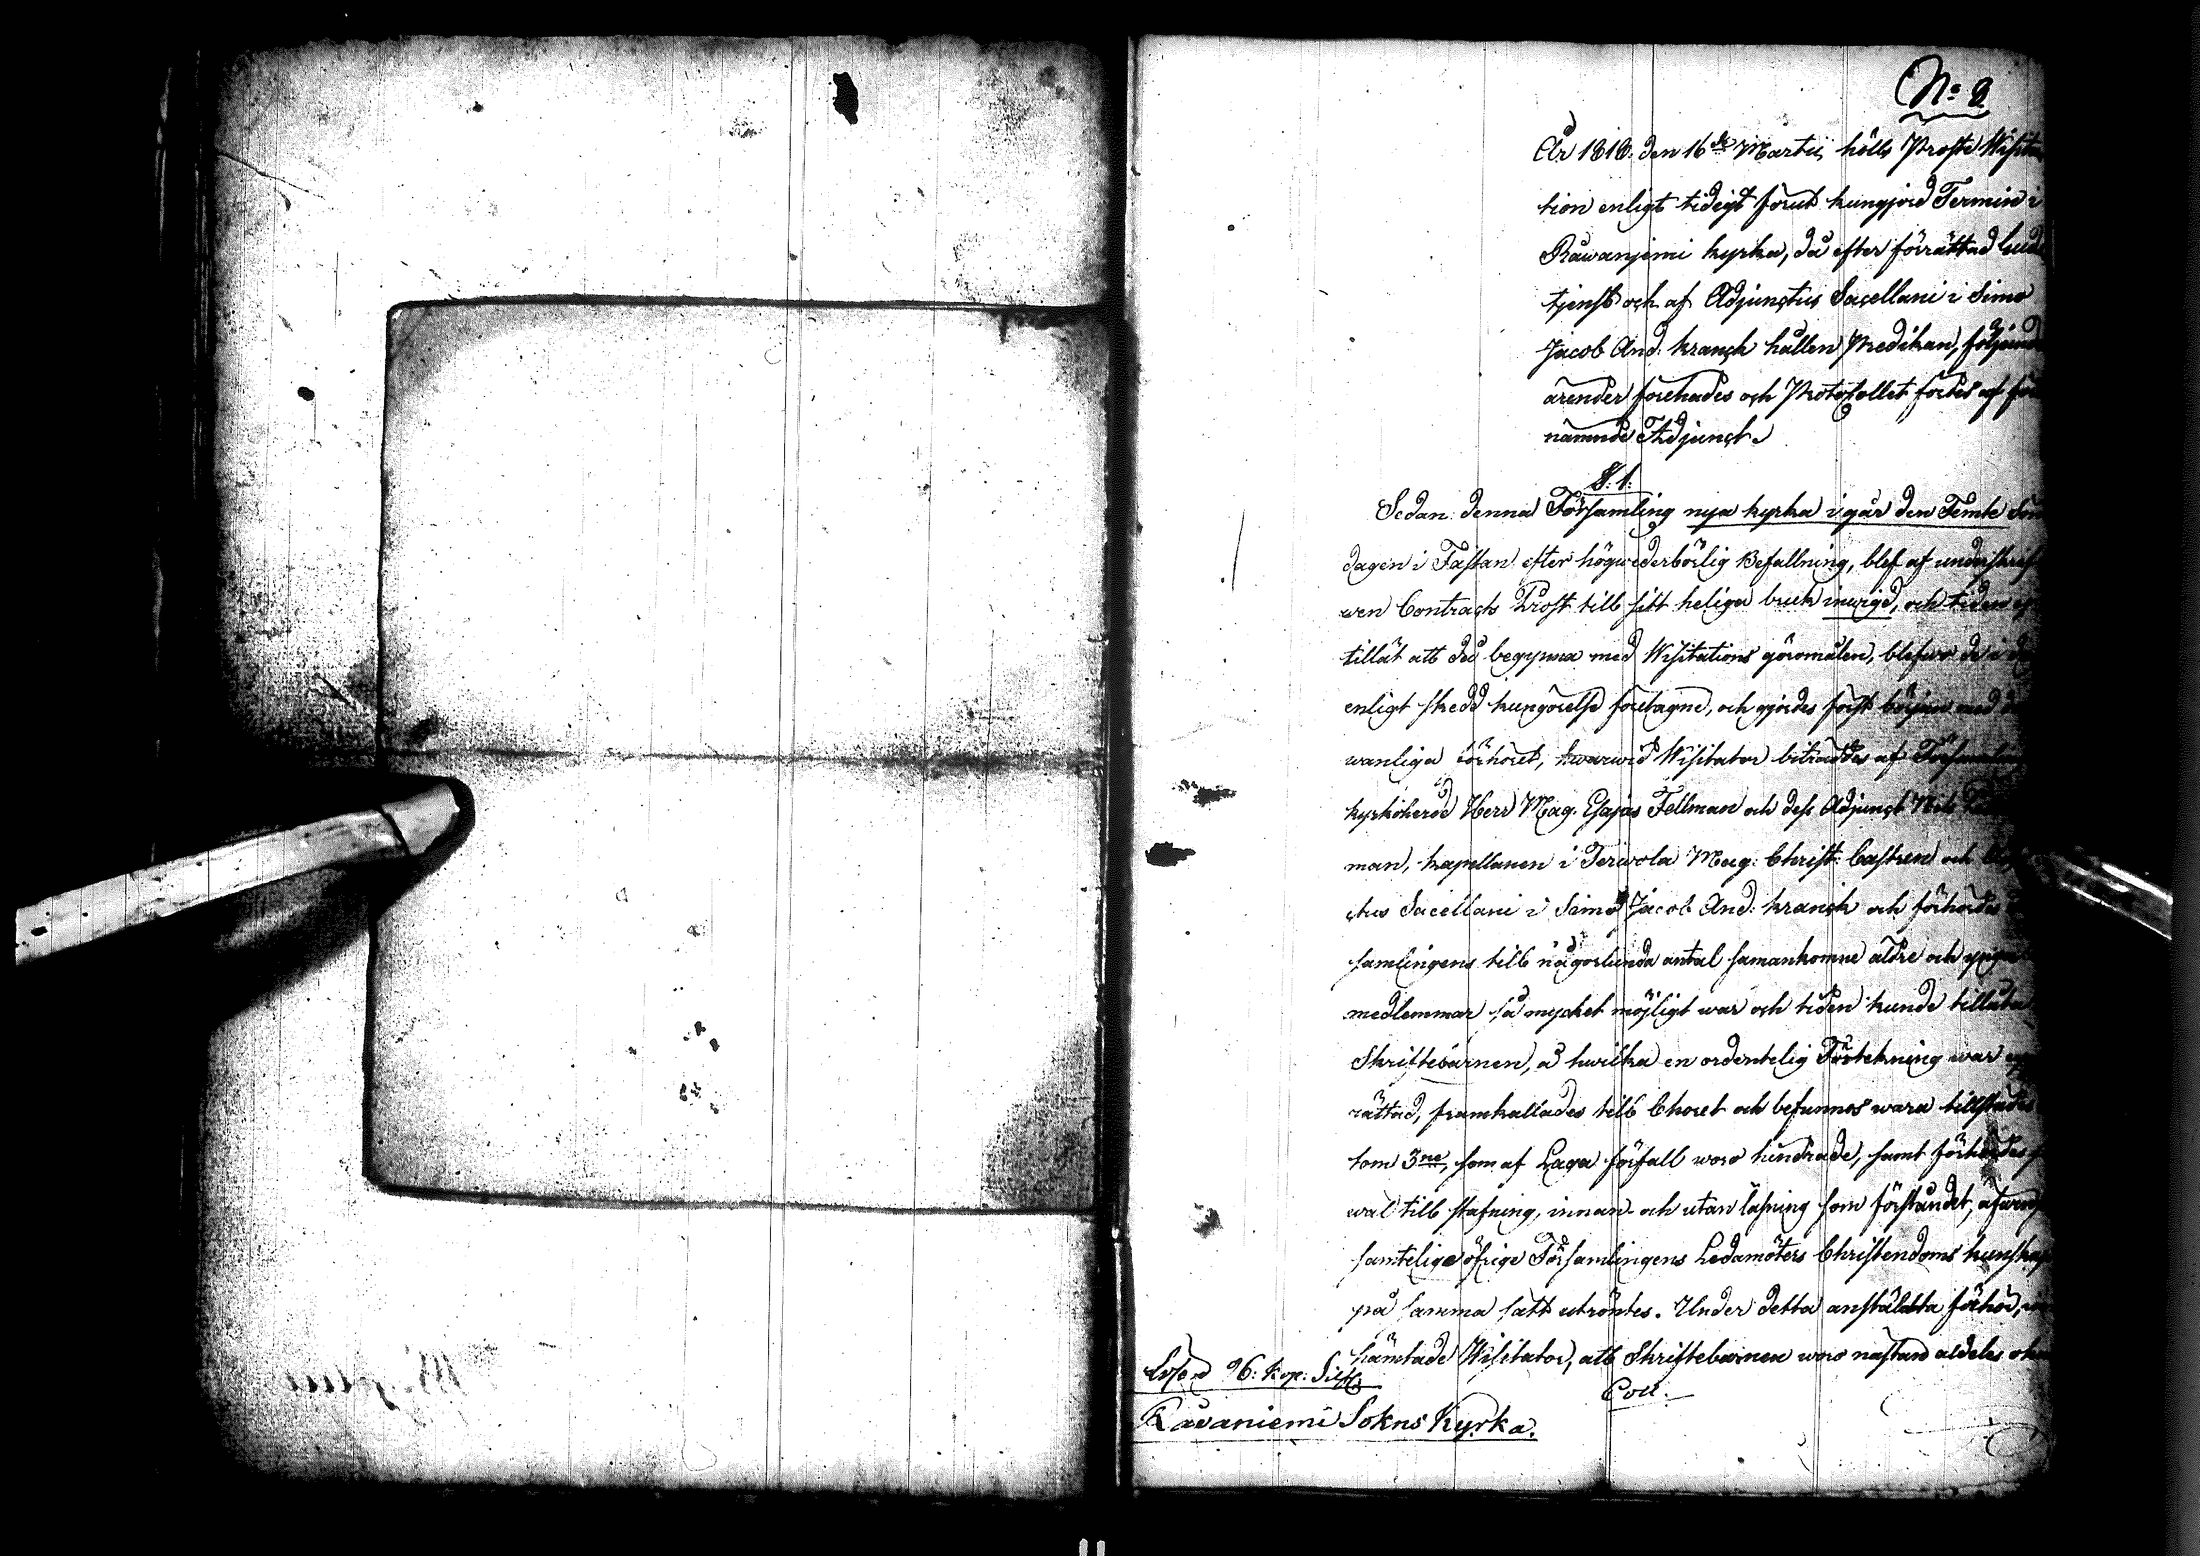 No 2
År 1818. den 16de Martii, hölls Prosts Wisita
tion enligt tideigt förut kungjord Termin i
Råwanjemi kyrka, då efter förrättad Guds
tjenst och af Adjunctus Sacellani i Simo
Jacob And. Kranck hållen Predikan, följande
ärender förehades och Protocollet fördes af för
nämnde Adjunct.
§. 1.
Sedan denna Församling nya kyrka i går den Femte Sön
dagen i Fastan efter högwederbörlig Befallning, blef af underskrif
wen Contracts Prost till sitt heliga bruk inwigd, och tiden ej
tillät att då begynna med Wisitations göromålen, blefwo de i dag
enligt skedd kungörelse företagne, och gjordes först början med det
wanliga förhöret, hwarwid Wisitator biträddes af Församlin
kyrkoherde Herr Mag. Esajas Fellman och dess Adjunct
man, kapellanen i Terwola Mag: Christ: Castren och Adj
ctus Sacellani i Simo Jacob And: Kranck och förhördes
samlingens till någorlunda antal samankomne äldre och yngre
medlemmar så mycket möjligt war och tiden kunde tillåta
Skriftebarnen, å hwilka en ordentelig Förtekning war upp
rättad, framkallades till Choret och befunnos wara tillstädes
tom 3ne, som af Laga förfall woro hindrade, samt förhördes så
wäl till stafning, innan- och utan läsning som förståndet, äfwen
samtelige öfrige Församlingens Ledamöters Christendoms kunskap
på samma sätt utröntes. Under detta anstälda förhör, in
hämtade Wisitator, att Skriftebarnen woro nästan aldeles
96. Kop: Silf
Coll.
Råvaniemi Sokns Kyrka.